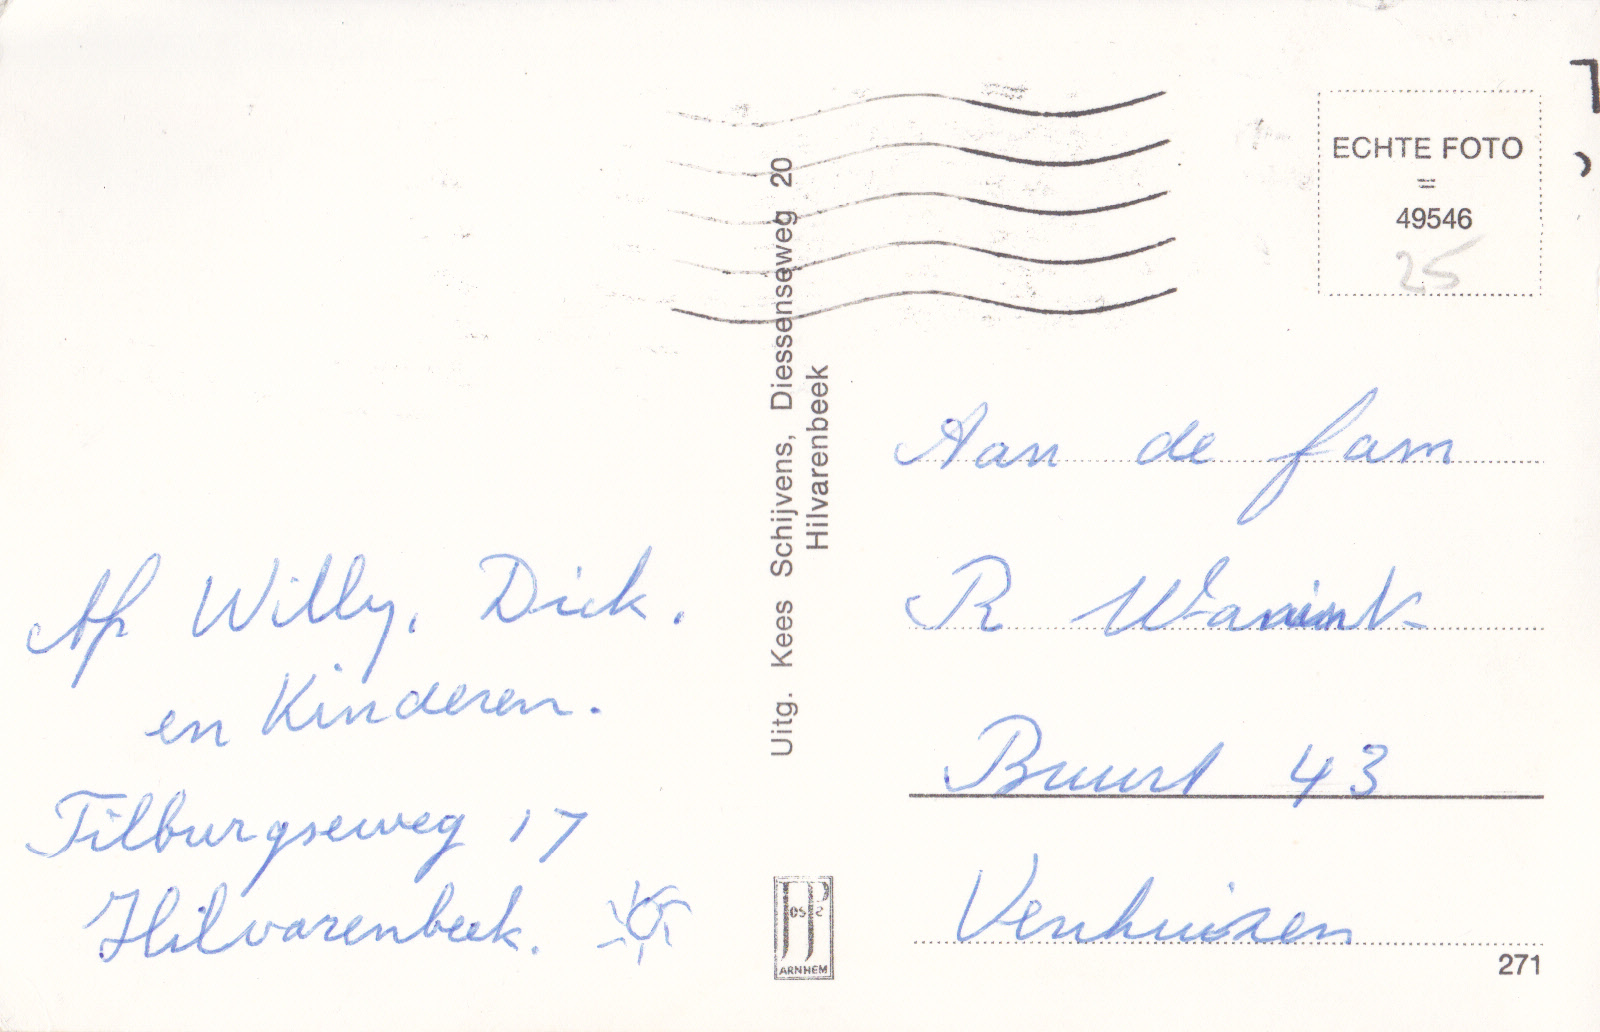 Af Willy, Dick.
en Kinderen.
Tilburgseweg 17
Hilvarenbeek.
Uitg. Kees Schijvens, Diessenseweg 20
Hilvarenbeek
ARNHEM
ECHTE FOTO
=
49546
25
Aan de fam
R Wanink
Buurt 43
Venhuizen
271